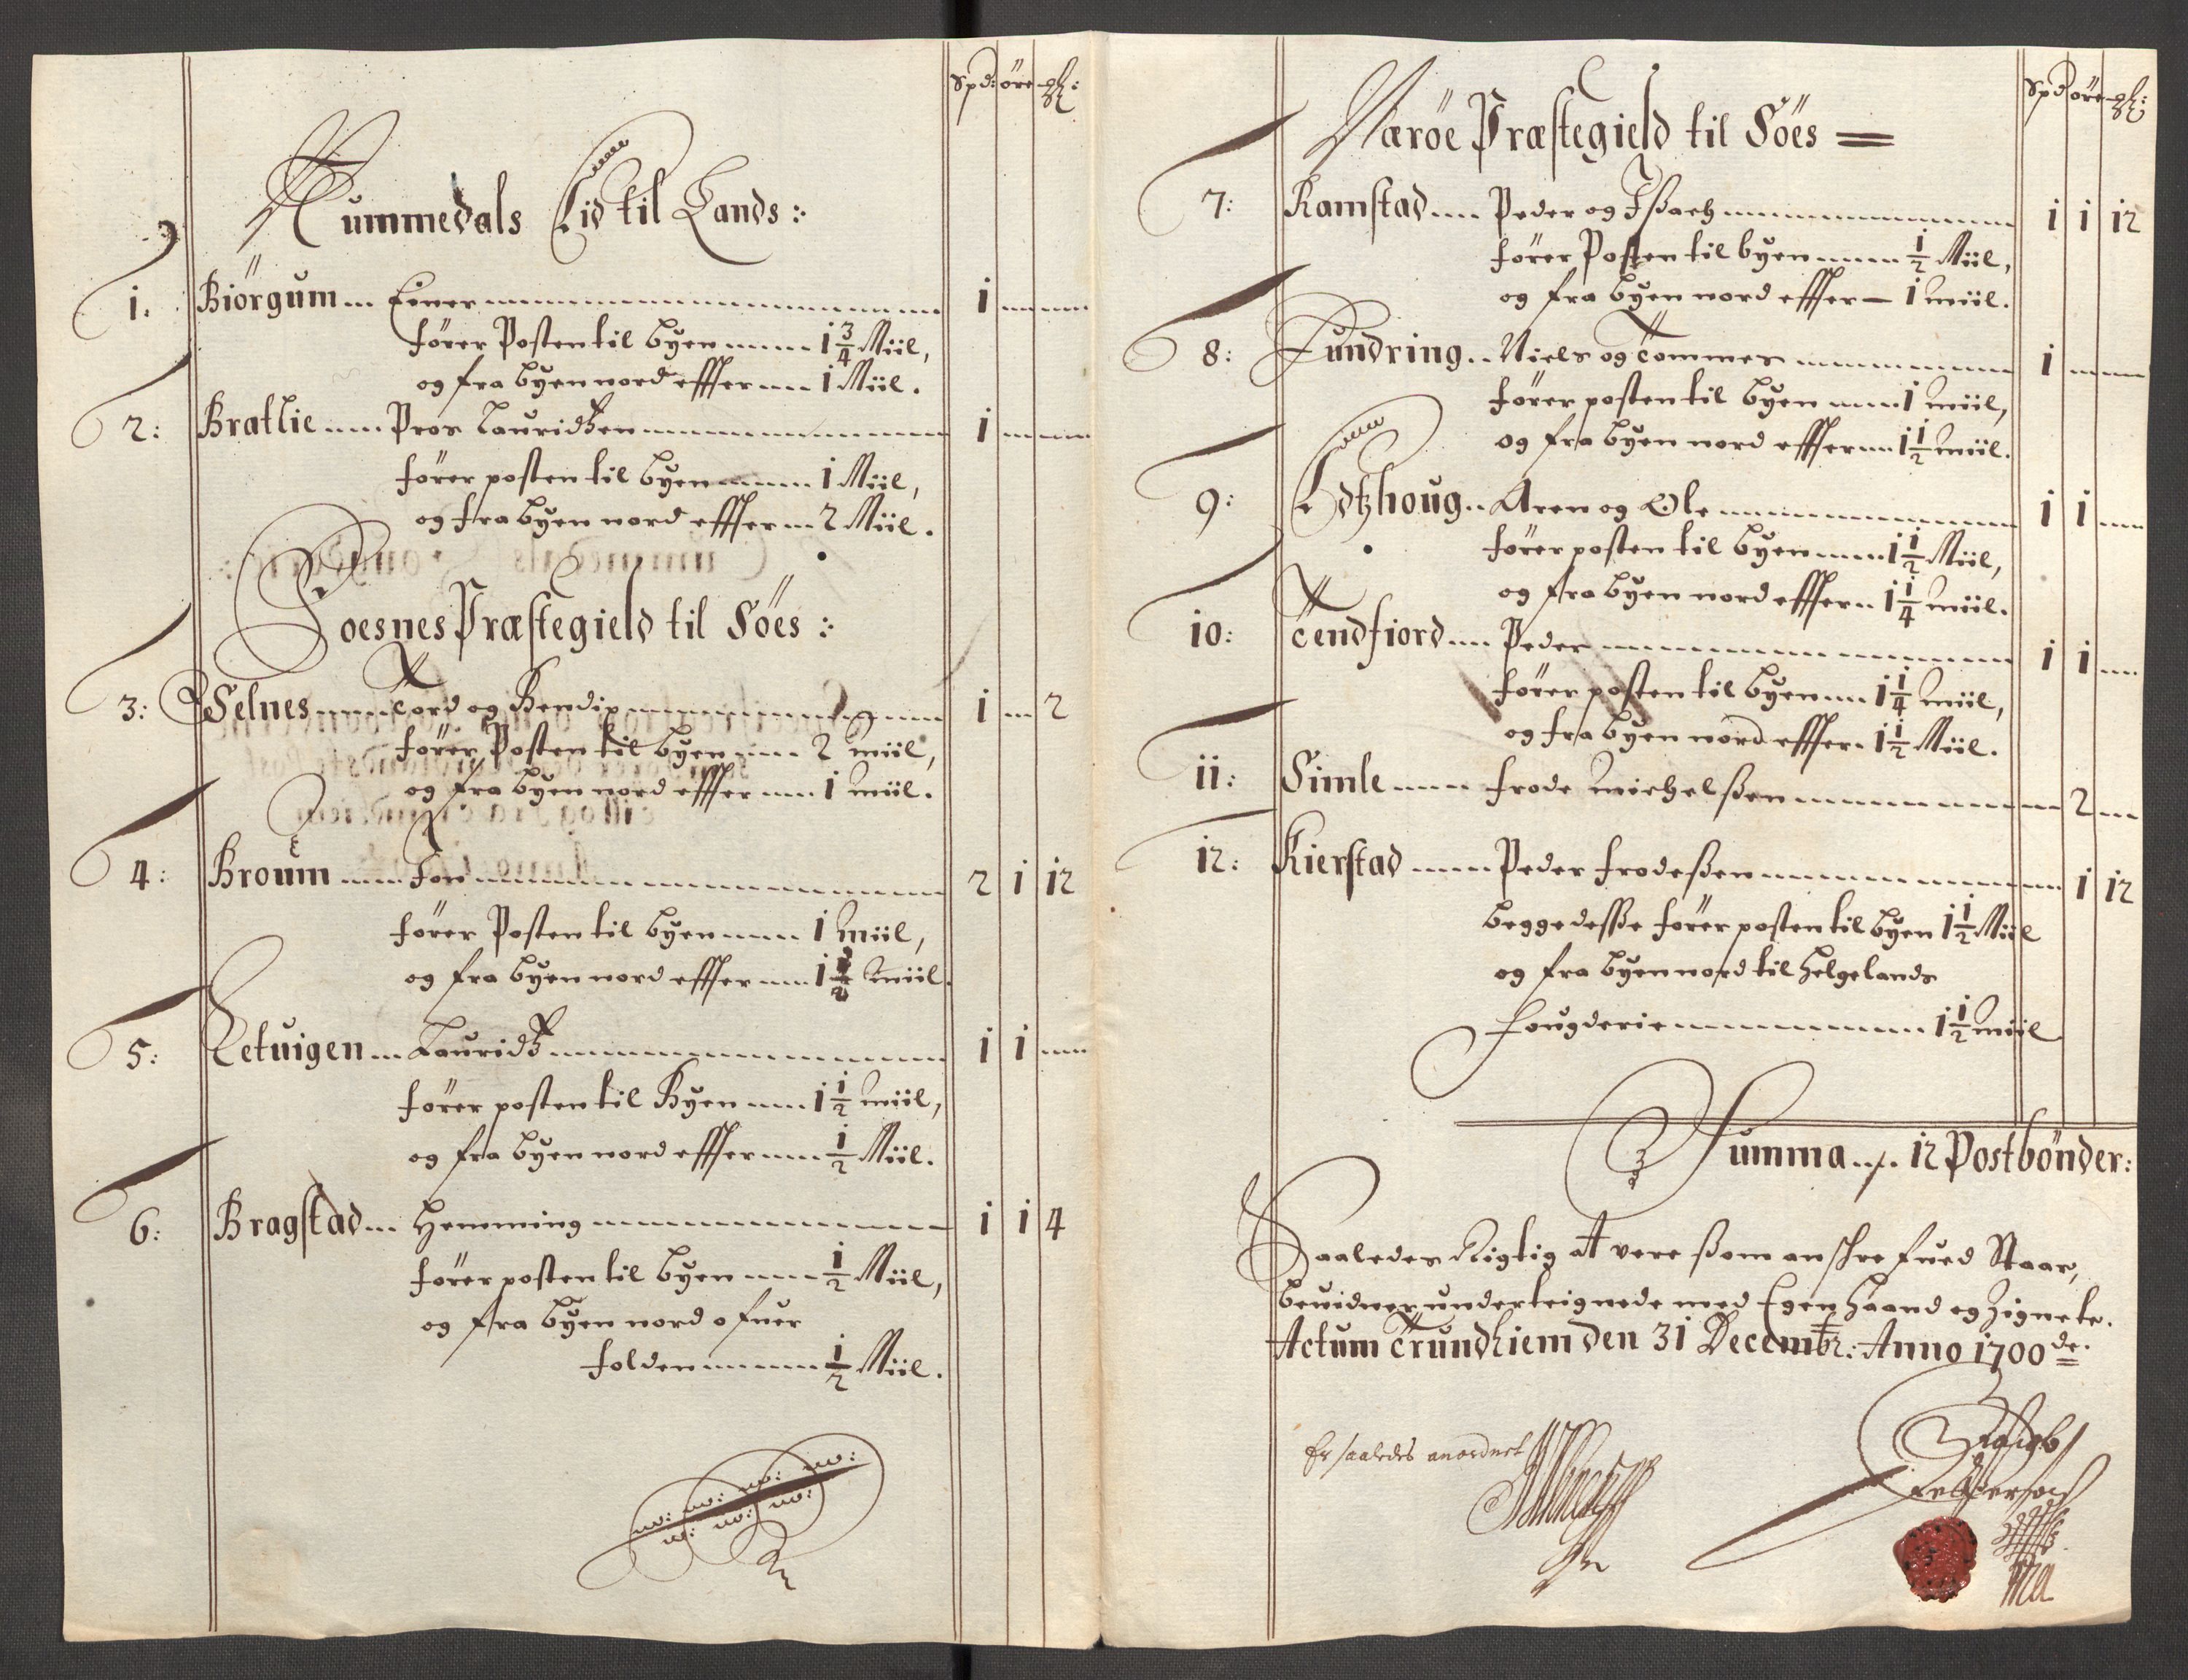 Spd: öre ꝣ:
Nummedals Lid til Lands:
1. Biörgum Einer 1
förer Posten til byen 1 3/4 Miil,
og fra byen nord effter 1 Miil.
2: Bratlie Pros Lauridtzen 1
förer posten til byen 1 Miil,
og fra byen nord effter 2 Miil.
Foesnes Præstegield til Söes:
3: Selnes Tord og Bendix 1 2
förer Posten til byen 2 miil,
og fra byen nord effter 1 miil.
4: Broum Jon 2 1 12
förer Posten til byen 1 Miil,
og fra byen nord effter 1 1/2 Miil.
5: Letuigen Lauridtz 1 1
förer posten til Byen 1 1/2 miil,
og fra byen nord effter 1/2 Miil.
6: Bragstad Hemming 1 1 4
förer posten til byen 1/2 Miil,
og fra byen nord ofuer
folden 1/2 Miil.
Spd öre
Næröe Præstegield til Söes
7: Ramstad Peder og Ißach 1 1 12
förer Posten til byen 1/2 Miil,
og fra byen nord effter 1 miil.
8: Fundring Niels og Tommes 1
förer posten til byen 1 miil,
og fra byen nord effter 1 1/2 miil.
9: Edtzhoug Aren og Ole 1 1
förer posten til byen 1 1/2 Miil,
og fra byen nord effter 1 1/4 miil.
10: Tendfiord Peder 1 1
förer posten til byen 1 1/4 miil,
og fra byen nord effter 1 1/2 Miil.
11: Simle frode Michelßen 2
12: Kierstad Peder frodeßen 1 12
beggedeße förer posten til byen 1 1/2 Miil
og fra byen nord til Helgelands
fougderie 1 1/2 miil
Summa 12 Postbönder:
Saaledes Rigtig at vere ßom anschrefued Staar,
beuidner underteignede med Egen Haand og Zignete.
Actum Trundhiem den 31 Decembr: Anno 1700de.
Er saaledes anordnet
mea